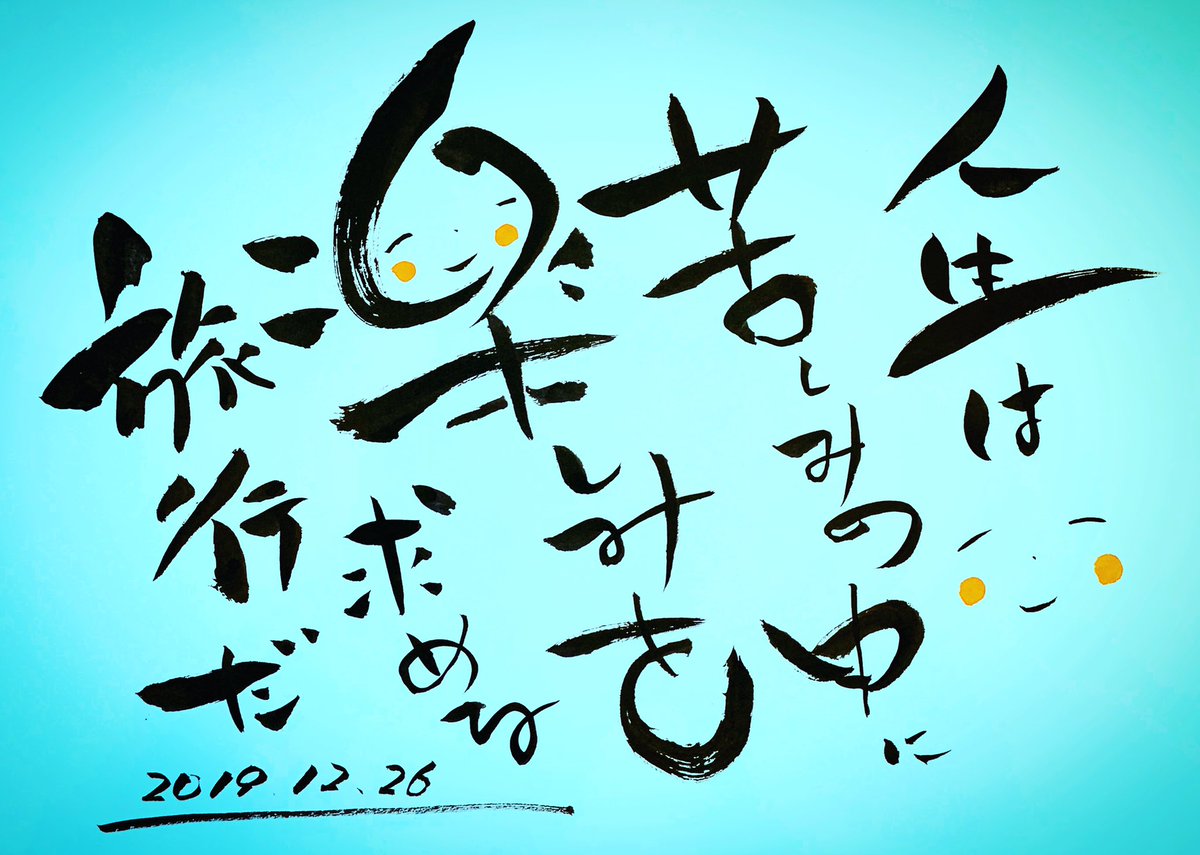 人生は
苦しみの中に
楽しみを
求める
旅行だ
2019.12.26